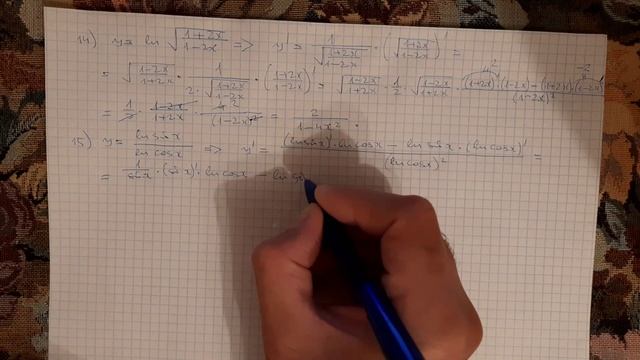 14) y = ln √((1+2x)/(1-2x)) => y' = 1/√((1+2x)/(1-2x)) · (√((1+2x)/(1-2x)))' =
= √((1-2x)/(1+2x)) · 1/(2·√((1+2x)/(1-2x))) · ((1+2x)/(1-2x))' = √((1-2x)/(1+2x)) · 1/2 · √((1-2x)/(1+2x)) · ((1+2x)'·(1-2x)-(1+2x)·(1-2x)')/(1-2x)²
= 1/2 · (1-2x)/(1+2x) · 4/(1-2x)² = 2/(1-4x²) .
15) y = ln sin x/ln cos x => y' = ((ln sin x)'·ln cos x - ln sin x·(ln cos x)')/(ln cos x)² =
= 1/sin x · (sin x)'·ln cos x - ln si